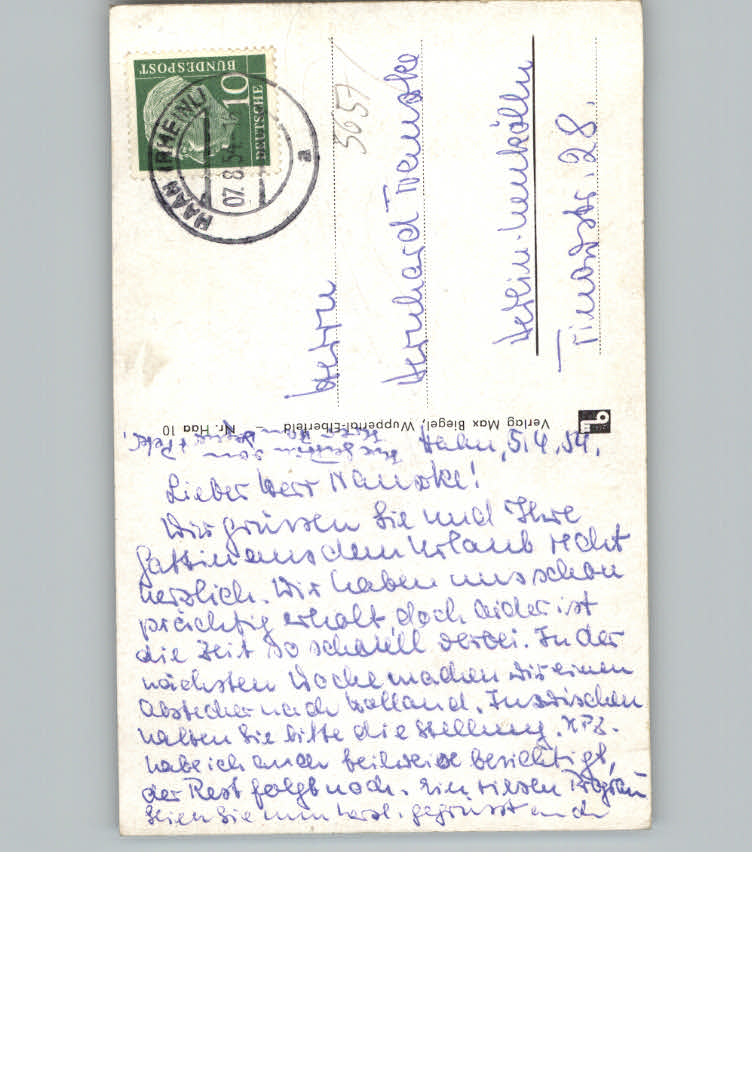 DEUTSCHE
BUNDESPOST
10
HAAN (RHEINL)
07.8.54
a
5657
Herrn
Bernhard
Berlin-Neukölln
28.
Verlag Max Biegel, Wuppertal-Elberfeld — Nr. Haa 10
Haan, 5.4.54.
Lieber Herr
Wir grüssen Sie und Ihre
Gattin aus dem Urlaub recht
herzlich. Wir haben uns schon
prächtig erholt, doch leider ist
die Zeit so schnell vorbei. In der
nächsten Woche machen wir einen
Abstecher nach Holland. Inzwischen
halten Sie bitte die Stellung.
habe ich auch teilweise besichtigt,
der Rest folgt noch. Ein riesen Program
Seien Sie nun herzl. gegrüsst auch